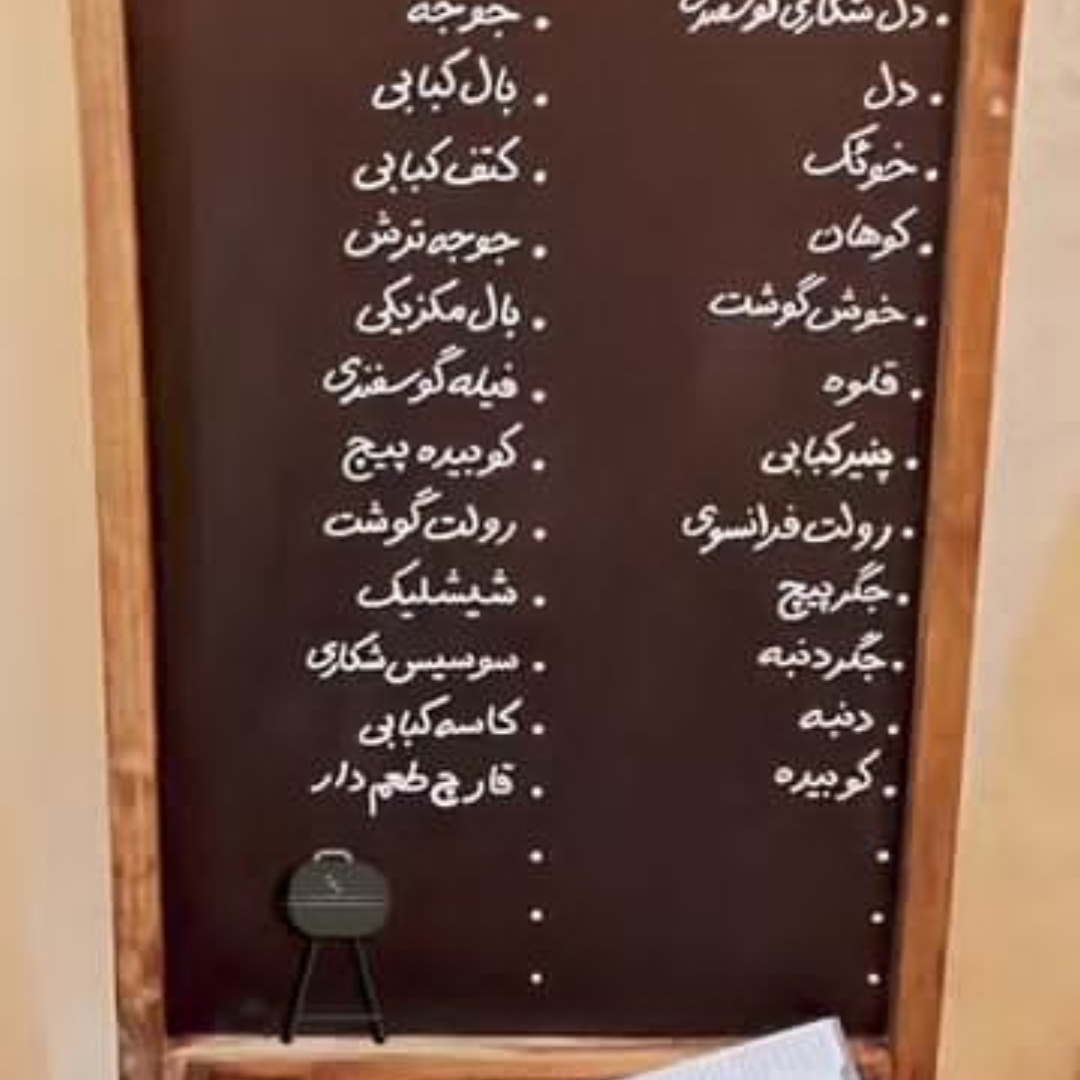 دل شکاری گوسفندی
دل
خوئک
کوهان
خوش گوشت
قلوه
پنیر کبابی
رولت فرانسوی
جگر پیچ
جگر دنبه
دنبه
کوبیده
جوجه
بال کبابی
کتف کبابی
جوجه ترش
بال مکزیکی
فیله گوسفندی
کوبیده پیچ
رولت گوشت
شیشلیک
سوسیس شکاری
کاسه کبابی
قارچ طعم دار